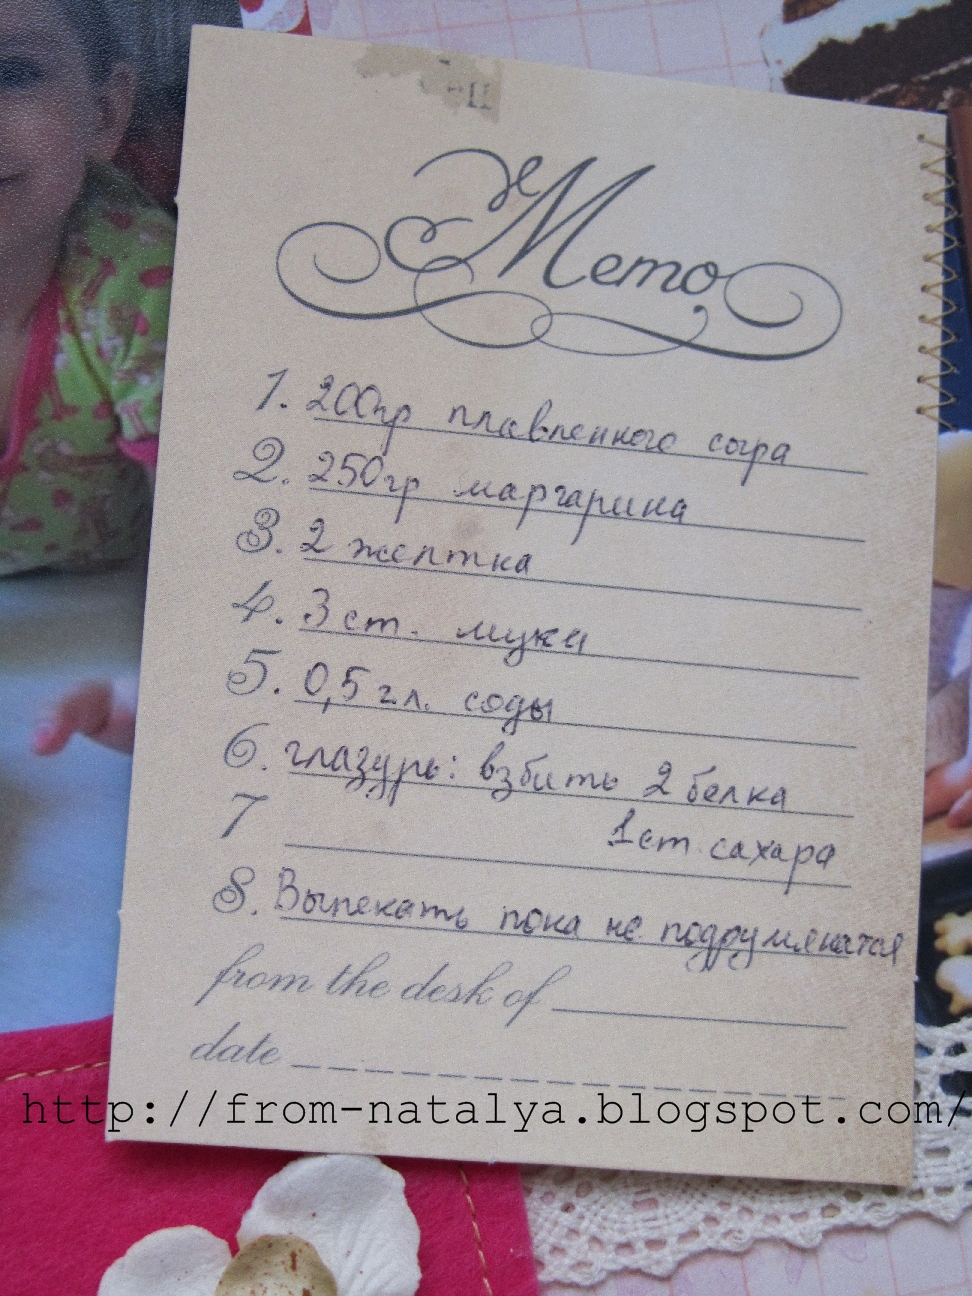 Memo
1. 200гр плавленного сыра
2. 250гр маргарина
3. 2 желтка
4. 3 ст. муки
5. 0,5 г л. соды
6. глазурь: взбить 2 белка
7 1 ст сахара
8. Выпекать пока не подрумянятся
from the desk of
date
http://from-natalya.blogspot.com/